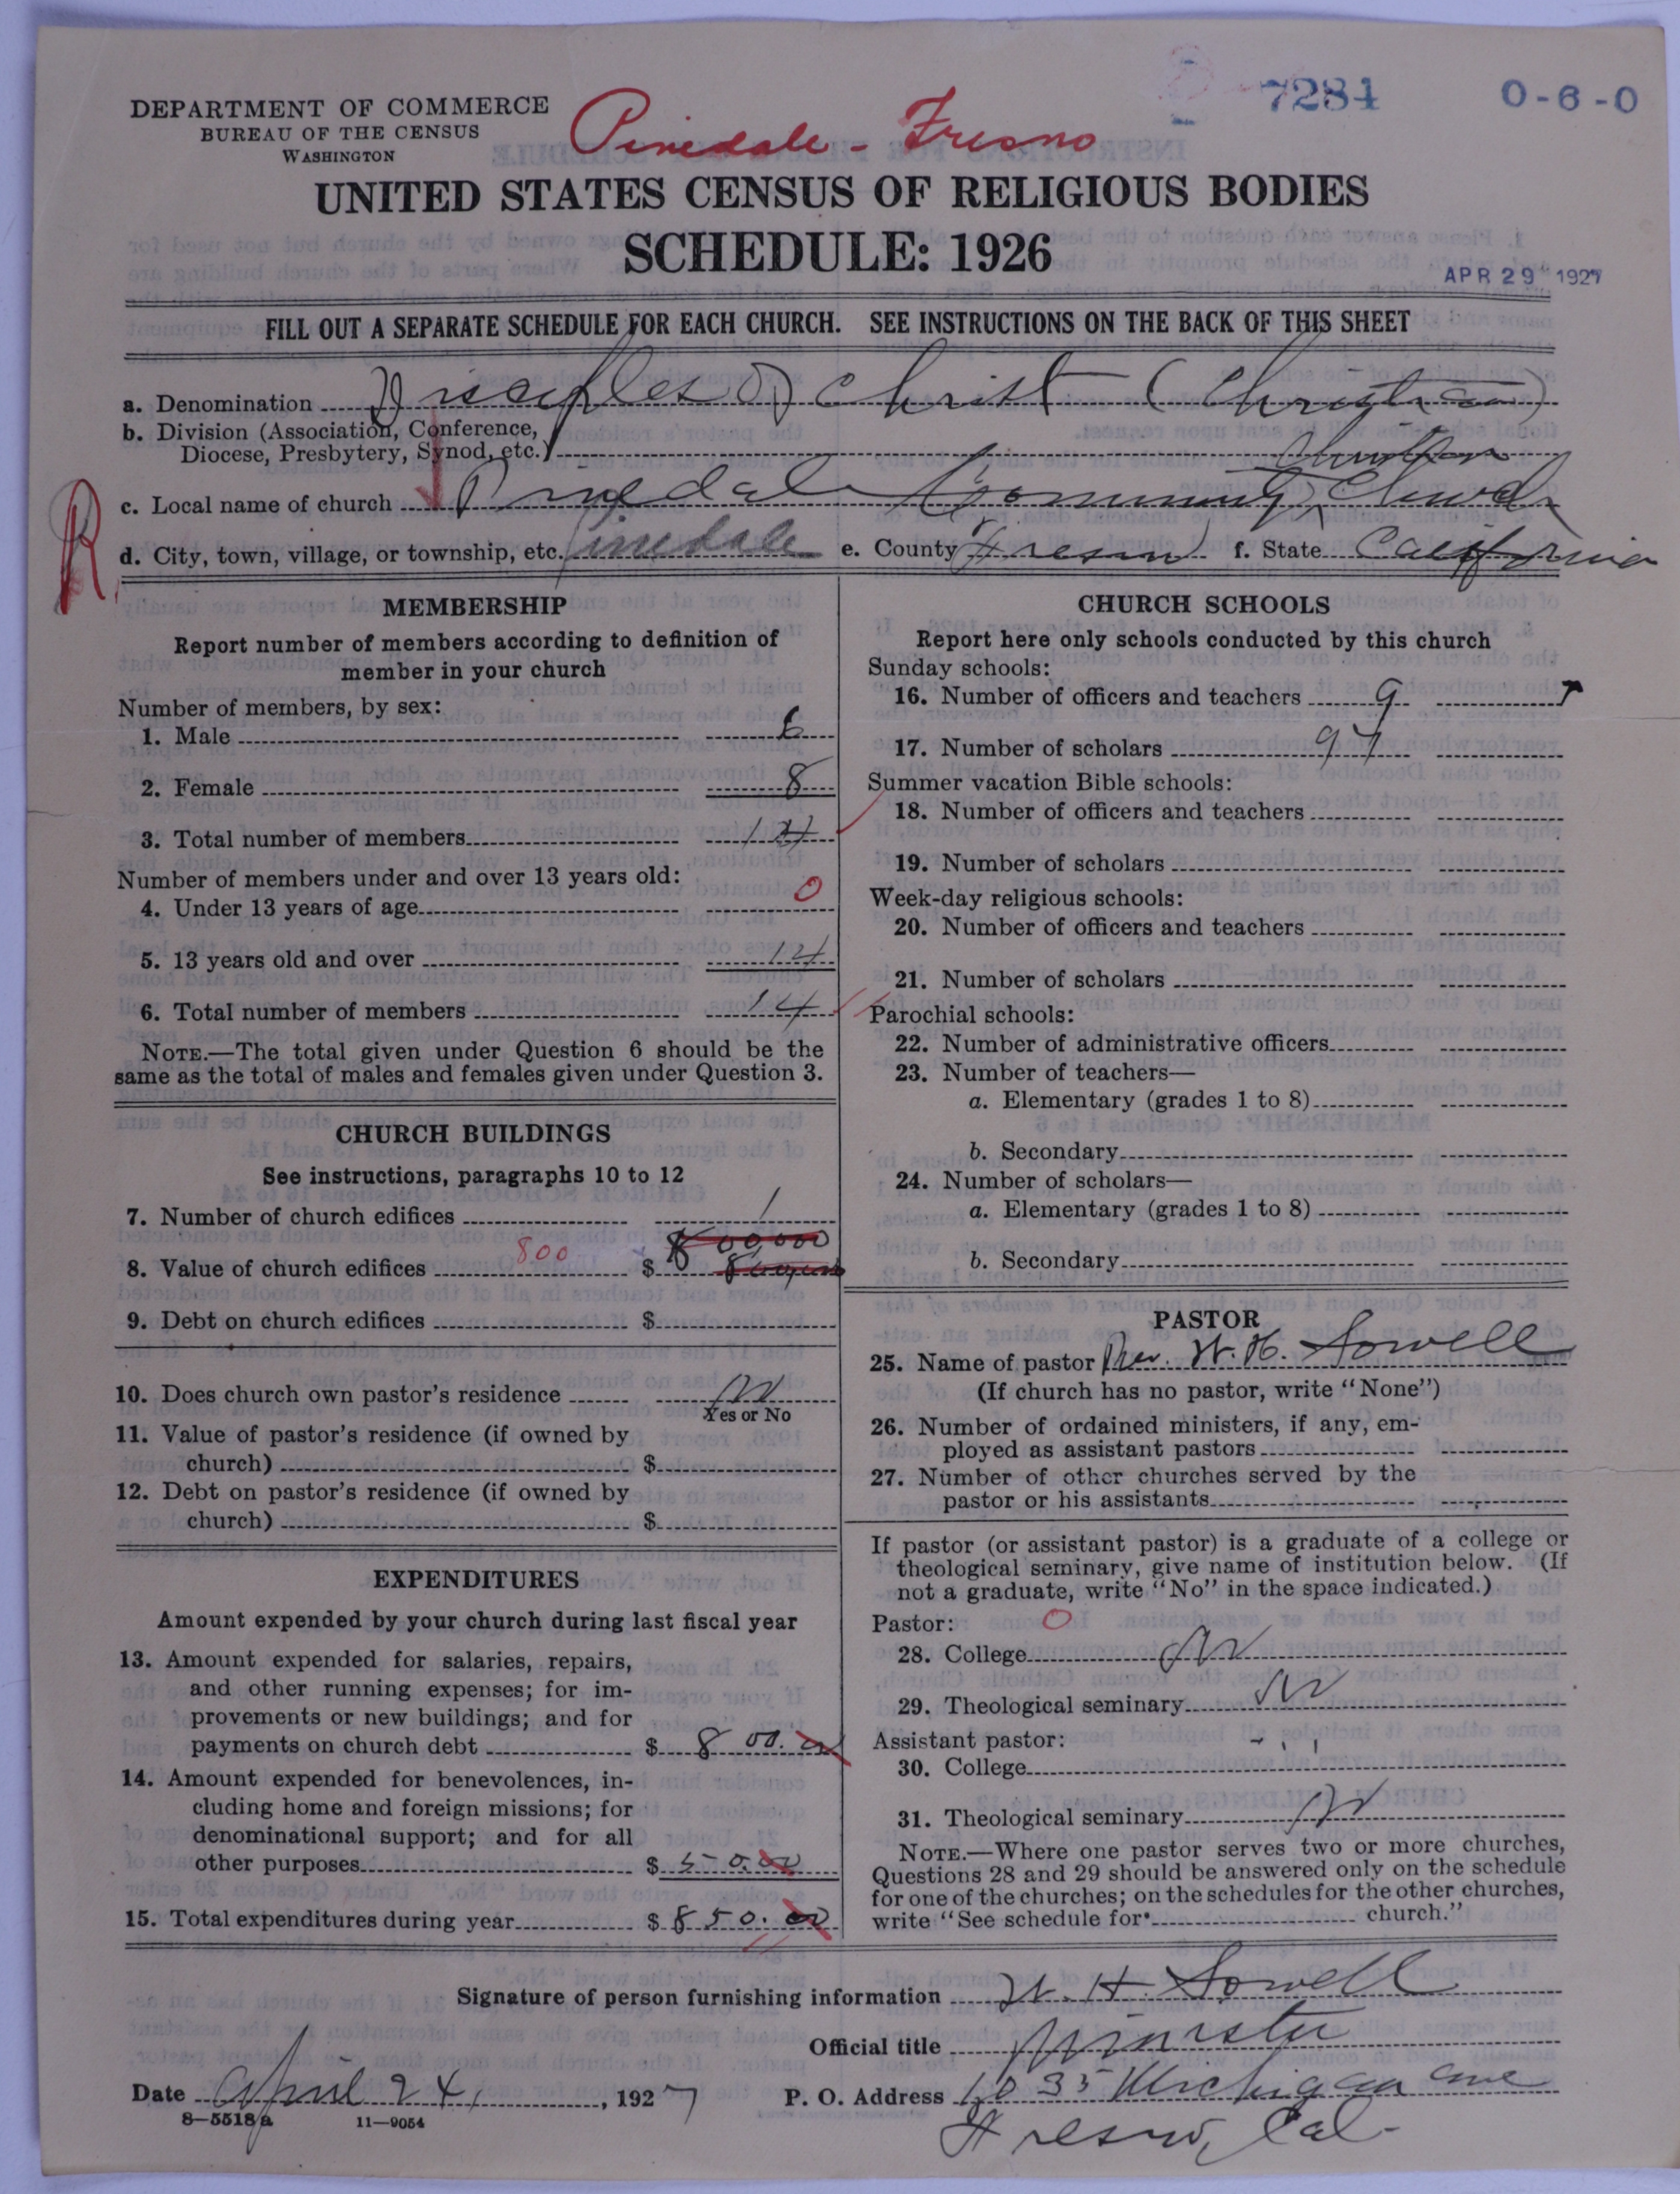 7284 0-6-0
DEPARTMENT OF COMMERCE
BUREAU OF THE CENSUS
WASHINGTON
Pinedale - Fresno
UNITED STATES CENSUS OF RELIGIOUS BODIES
SCHEDULE: 1926
APR 29 1927
FILL OUT A SEPARATE SCHEDULE FOR EACH CHURCH. SEE INSTRUCTIONS ON THE BACK OF THIS SHEET
a. Denomination Disciples of Christ (Christian)
b. Division (Association, Conference,
Diocese, Presbytery, Synod, etc.)
Christian
c. Local name of church Pinedale Community Church
R
d. City, town, village, or township, etc. Pinedale e. County Fresno f. State California
MEMBERSHIP
Report number of members according to definition of
member in your church
Number of members, by sex:
1. Male 6
2. Female 8
3. Total number of members 14
Number of members under and over 13 years old:
4. Under 13 years of age 0
5. 13 years old and over 14
6. Total number of members 14
NOTE.—The total given under Question 6 should be the
same as the total of males and females given under Question 3.
CHURCH BUILDINGS
See instructions, paragraphs 10 to 12
7. Number of church edifices 1
8. Value of church edifices 800 $ 800,000
9. Debt on church edifices $
10. Does church own pastor's residence No
Yes or No
11. Value of pastor's residence (if owned by
church) $
12. Debt on pastor's residence (if owned by
church) $
EXPENDITURES
Amount expended by your church during last fiscal year
13. Amount expended for salaries, repairs,
and other running expenses; for im-
provements or new buildings; and for
payments on church debt $ 800.00
14. Amount expended for benevolences, in-
cluding home and foreign missions; for
denominational support; and for all
other purposes $ 50.00
15. Total expenditures during year $ 850.00
CHURCH SCHOOLS
Report here only schools conducted by this church
Sunday schools:
16. Number of officers and teachers 9
17. Number of scholars 97
Summer vacation Bible schools:
18. Number of officers and teachers
19. Number of scholars
Week-day religious schools:
20. Number of officers and teachers
21. Number of scholars
Parochial schools:
22. Number of administrative officers
23. Number of teachers—
a. Elementary (grades 1 to 8)
b. Secondary
24. Number of scholars—
a. Elementary (grades 1 to 8)
b. Secondary
PASTOR
25. Name of pastor Rev. W. H. Sowell
(If church has no pastor, write "None")
26. Number of ordained ministers, if any, em-
ployed as assistant pastors
27. Number of other churches served by the
pastor or his assistants
If pastor (or assistant pastor) is a graduate of a college or
theological seminary, give name of institution below. (If
not a graduate, write "No" in the space indicated.)
Pastor: 0
28. College No
29. Theological seminary No
Assistant pastor:
30. College
31. Theological seminary No
NOTE.—Where one pastor serves two or more churches,
Questions 28 and 29 should be answered only on the schedule
for one of the churches; on the schedules for the other churches,
write "See schedule for church."
Signature of person furnishing information W. H. Sowell
Official title Minister
Date April 24, 1927 P. O. Address 1035 Michigan ave
8—5518a 11—9054
Fresno, Cal.